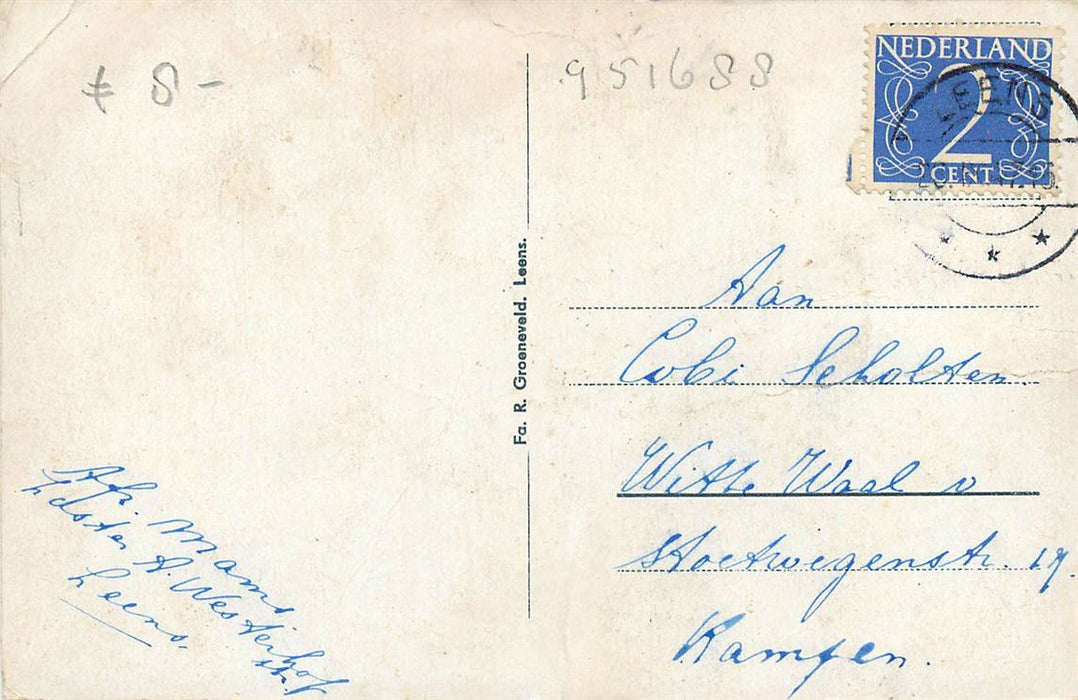 8-
951688
NEDERLAND
2
CENT
LEENS
Fa. R. Groeneveld. Leens.
Aan
Cobi Scholten.
Witte Waal v
Stoetwegenstr. 19.
Kampen.
Afz. Mams
A. Westerhof
str.
Leens.